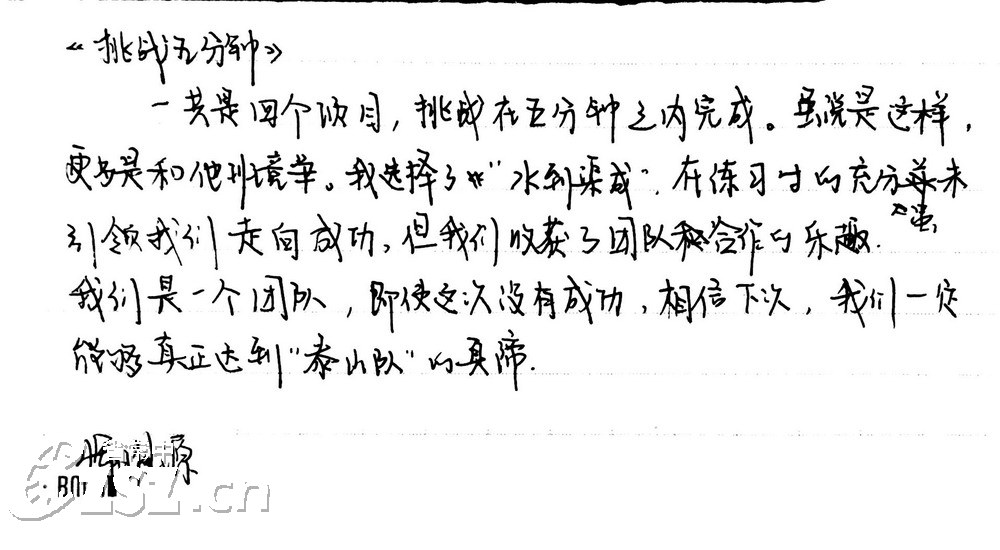 《挑战五分钟》
一共是四个项目，挑战在五分钟之内完成。虽说是这样，
更多是和他班竞争。我选择了“水到渠成”。在练习时的充分虽未
引领我们走向成功，但我们收获了团队和合作的乐趣.
我们是一个团队，即使这次没有成功，相信下次，我们一定
能够真正达到“泰山队”的真谛.
原
ZSZ.cn